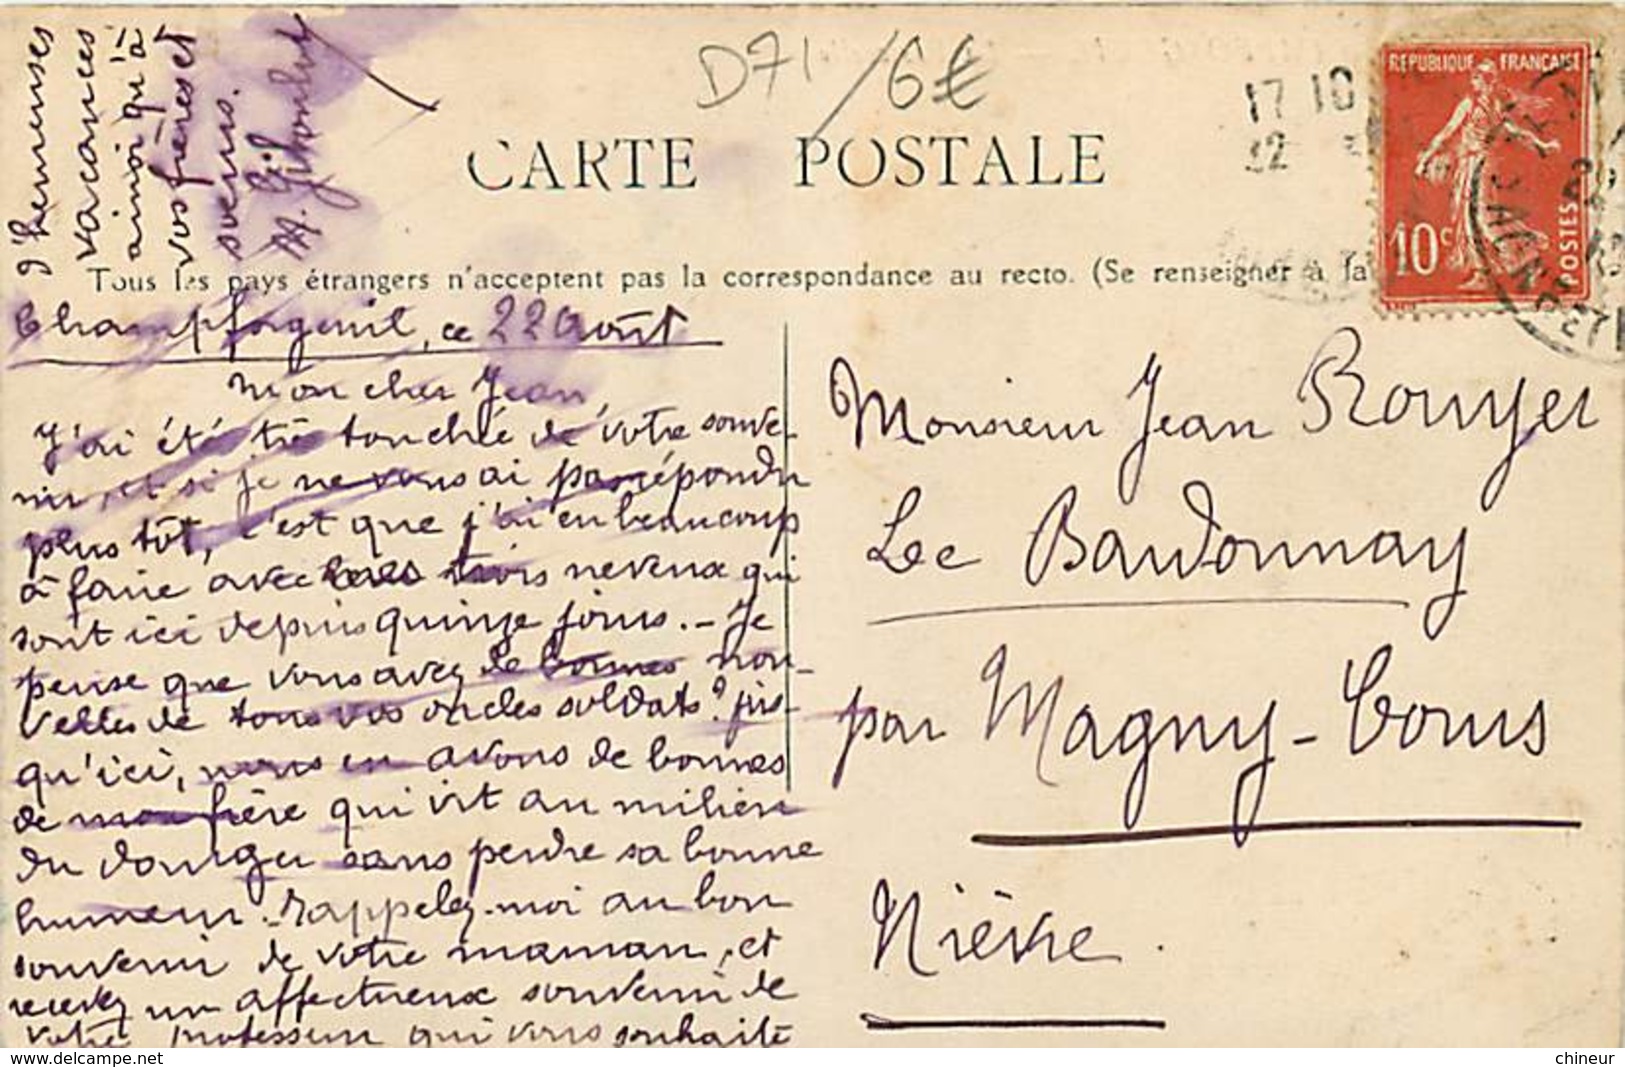 D71/6€
CARTE POSTALE
17 10
22
REPUBLIQUE FRANÇAISE
10c
POSTES
Tous les pays étrangers n'acceptent pas la correspondance au recto. (Se renseigner à la
Champforgeuil, ce 22 Août
Mon cher Jean,
J'ai été très touchée de votre souve-
nir, et si je ne vous ai pas répondu
plus tôt, c'est que j'ai eu beaucoup
à faire avec trois neveux qui
sont ici depuis quinze jours. - Je
pense que vous avez de bonnes nou-
velles de tous vos oncles soldats? jus-
qu'ici, nous en avons de bonnes
de mon frère qui vit au milieu
du danger sans perdre sa bonne
humeur. Rappelez-moi au bon
souvenir de votre maman, et
recevez un affectueux souvenir de
votre professeur qui vous souhaite
d'heureuses
vacances
ainsi qu'à
vos frères et
sœurs.
Monsieur Jean Rouyer
Le Baudonnay
par Magny-Cours
Nièvre.
chineur